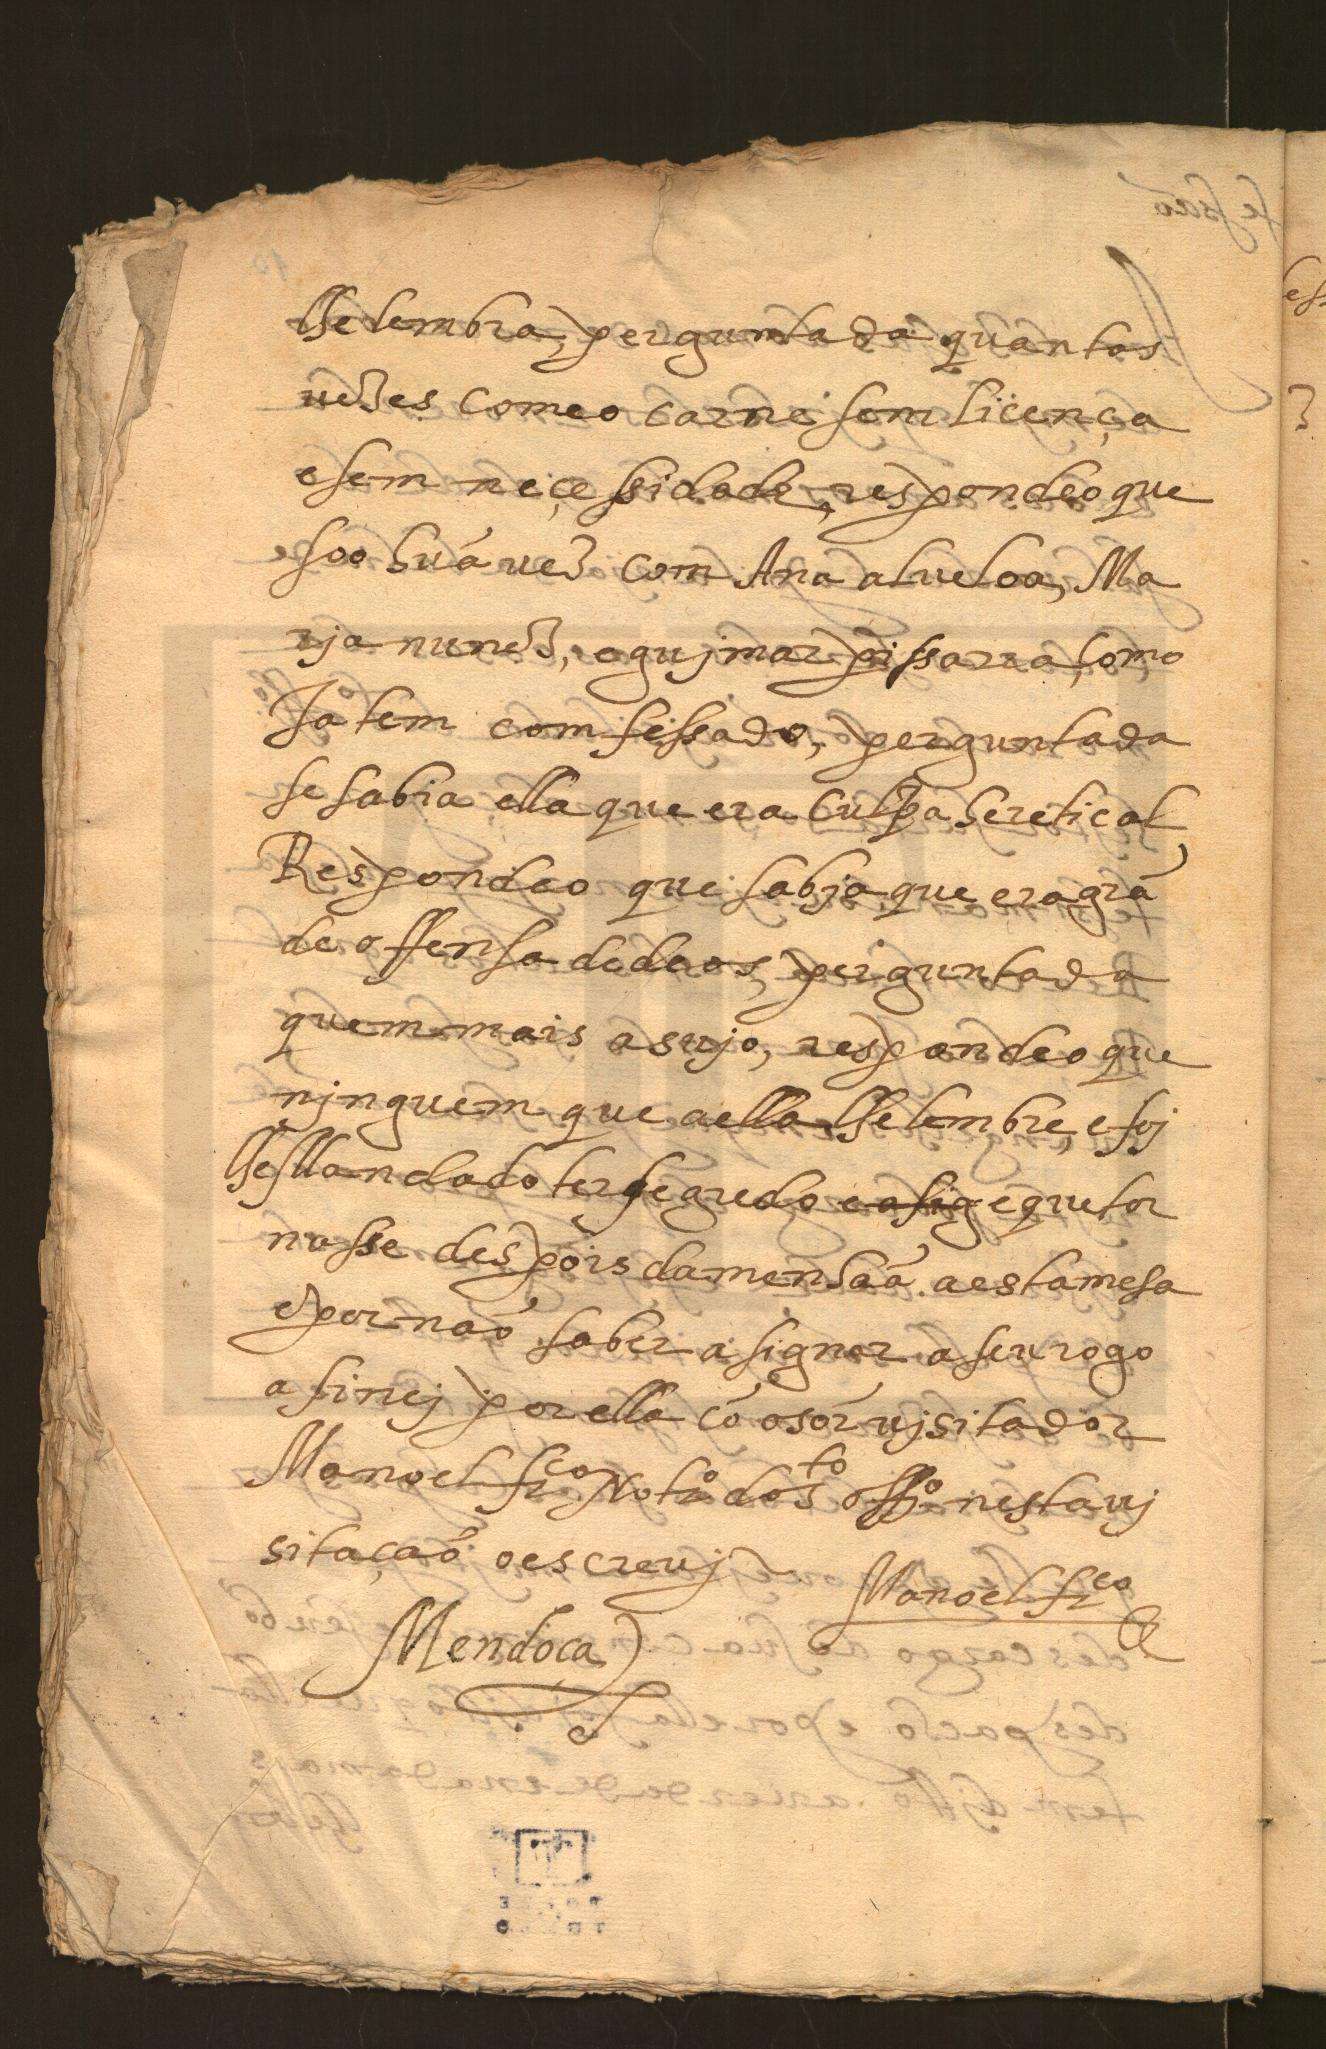 lhe lembra, perguntada quantas
vezes comeo carne sem licença
e sem neçessidade, respondeo que
soo huã vez com Ana alveloa, Ma
rja nunez, e gujmar pissarra, como
Ja tem comfessado, perguntada
se sabia ella que era culpa heretical,
Respondeo que sabja que era grã
de offensa de deos, perguntada
quem mais a vijo, respondeo que
njnguem que a ella lhe lembre, e foj
lhe mandado ter segredo e que tor
nasse despois da menhaã a esta mesa
e por naõ saber asignar a seu rogo
asinej por ella cõ o sõr vjsitador
Manoel frco Notro do sto offo nesta vj
sitaçaõ o escrevj
Manoel frco
Mendoça